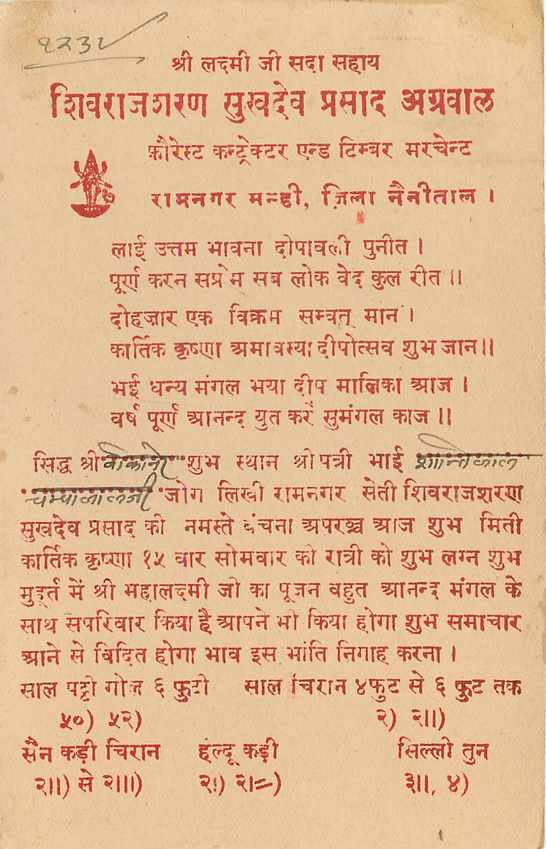 १२३४
श्री लक्ष्मी जी सदा सहाय
शिवराजशरण सुखदेव प्रसाद अग्रवाल
फ़ौरेस्ट कन्ट्रेक्टर एन्ड टिम्बर मरचेन्ट
रामनगर मन्डी, ज़िला नैनीताल ।
लाई उत्तम भावना दीपावली पुनीत ।
पूर्ण करन सप्रेम सब लोक वेद कुल रीत ॥
दोहज़ार एक विक्रम सम्वत् मान ।
कार्तिक कृष्णा अमावस्या दीपोत्सव शुभ जान॥
भई धन्य मंगल भया दीप मालिका आज ।
वर्ष पूर्ण आनन्द युत करें सुमंगल काज ॥
सिद्ध श्री बीकानेर शुभ स्थान श्री पत्री भाई
चम्पालालजी जोग लिखी रामनगर सेती शिवराजशरण
सुखदेव प्रसाद की नमस्ते बंचना अपरञ्च आज शुभ मिती
कार्तिक कृष्णा १५ वार सोमवार को रात्री को शुभ लग्न शुभ
मुहूर्त में श्री महालक्ष्मी जी का पूजन बहुत आनन्द मंगल के
साथ सपरिवार किया है आपने भी किया होगा शुभ समाचार
आने से विदित होगा भाव इस भांति निगाह करना ।
साल पट्टी गोल ६ फुटी साल चिरान ४फुट से ६ फुट तक
५०) ५२) २) २॥)
सैन कड़ी चिरान हल्दू कड़ी सिल्ली तुन
२॥) से २॥।) २।) २।=) ३॥, ४)